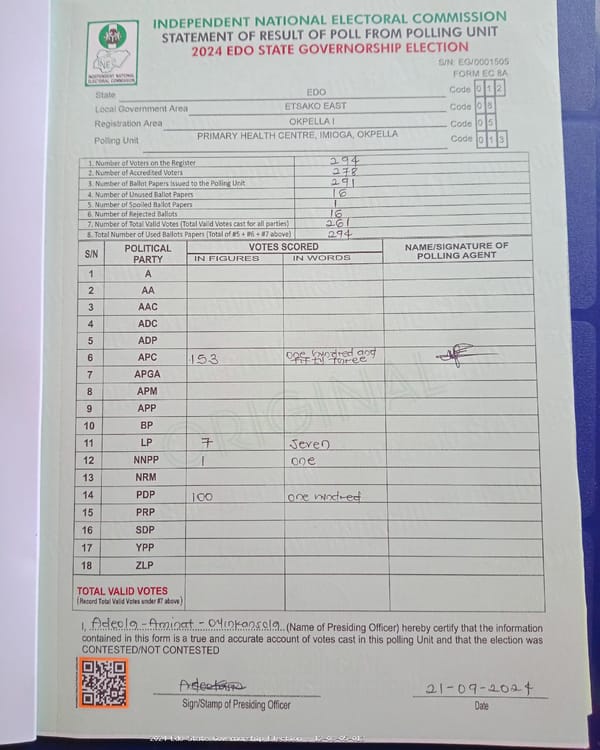 INDEPENDENT NATIONAL ELECTORAL COMMISSION
STATEMENT OF RESULT OF POLL FROM POLLING UNIT
2024 EDO STATE GOVERNORSHIP ELECTION
INEC
INDEPENDENT NATIONAL
ELECTORAL COMMISSION
S/N: EG/0001505
FORM EC 8A
State EDO Code 0 1 2
Local Government Area ETSAKO EAST Code 0 8
Registration Area OKPELLA I Code 0 5
Polling Unit PRIMARY HEALTH CENTRE, IMIOGA, OKPELLA Code 0 1 3
1. Number of Voters on the Register 294
2. Number of Accredited Voters 278
3. Number of Ballot Papers Issued to the Polling Unit 291
4. Number of Unused Ballot Papers 16
5. Number of Spoiled Ballot Papers 1
6. Number of Rejected Ballots 16
7. Number of Total Valid Votes (Total Valid Votes cast for all parties) 261
8. Total Number of Used Ballots Papers (Total of #5 + #6 + #7 above) 294
S/N POLITICAL PARTY VOTES SCORED NAME/SIGNATURE OF POLLING AGENT
IN FIGURES IN WORDS
1 A
2 AA
3 AAC
4 ADC
5 ADP
6 APC 153 one hundred and fifty three
7 APGA
8 APM
9 APP
10 BP
11 LP 7 Seven
12 NNPP 1 one
13 NRM
14 PDP 100 one hundred
15 PRP
16 SDP
17 YPP
18 ZLP
ORIGINAL
TOTAL VALID VOTES
(Record Total Valid Votes under #7 above)
I, Adeola-Aminat-Oyinkansola (Name of Presiding Officer) hereby certify that the information
contained in this form is a true and accurate account of votes cast in this polling Unit and that the election was
CONTESTED/NOT CONTESTED
21-09-2024
Sign/Stamp of Presiding Officer Date
2024 Edo State Governorship Election